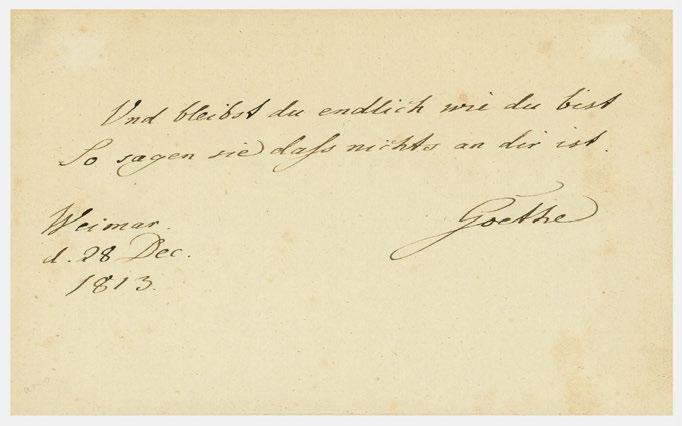 Und bleibst du endlich wie du bist
So sagen sie dass nichts an dir ist.
Weimar.
d. 28 Dec.
1813.
Goethe